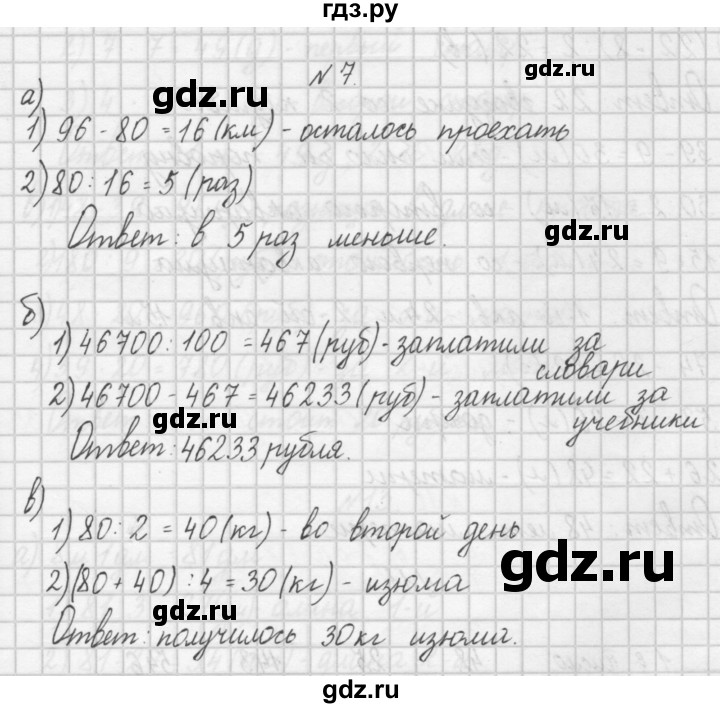 гдз.ру
№ 7.
gdz.ru
а)
gdz.ru
1) 96 - 80 = 16 (км) - осталось проехать
2) 80 : 16 = 5 (раз)
gdz.ru
Ответ: в 5 раз меньше.
gdz.ru
б)
1) 46700 : 100 = 467 (руб) - заплатили за
словари
gdz.ru
2) 46700 - 467 = 46233 (руб) - заплатили за
учебники
Ответ: 46233 рубля.
gdz.ru
в)
1) 80 : 2 = 40 (кг) - во второй день
gdz.ru
2) (80 + 40) : 4 = 30 (кг) - изюма
gdz.ru
Ответ: получилось 30 кг изюма.
gdz.ru